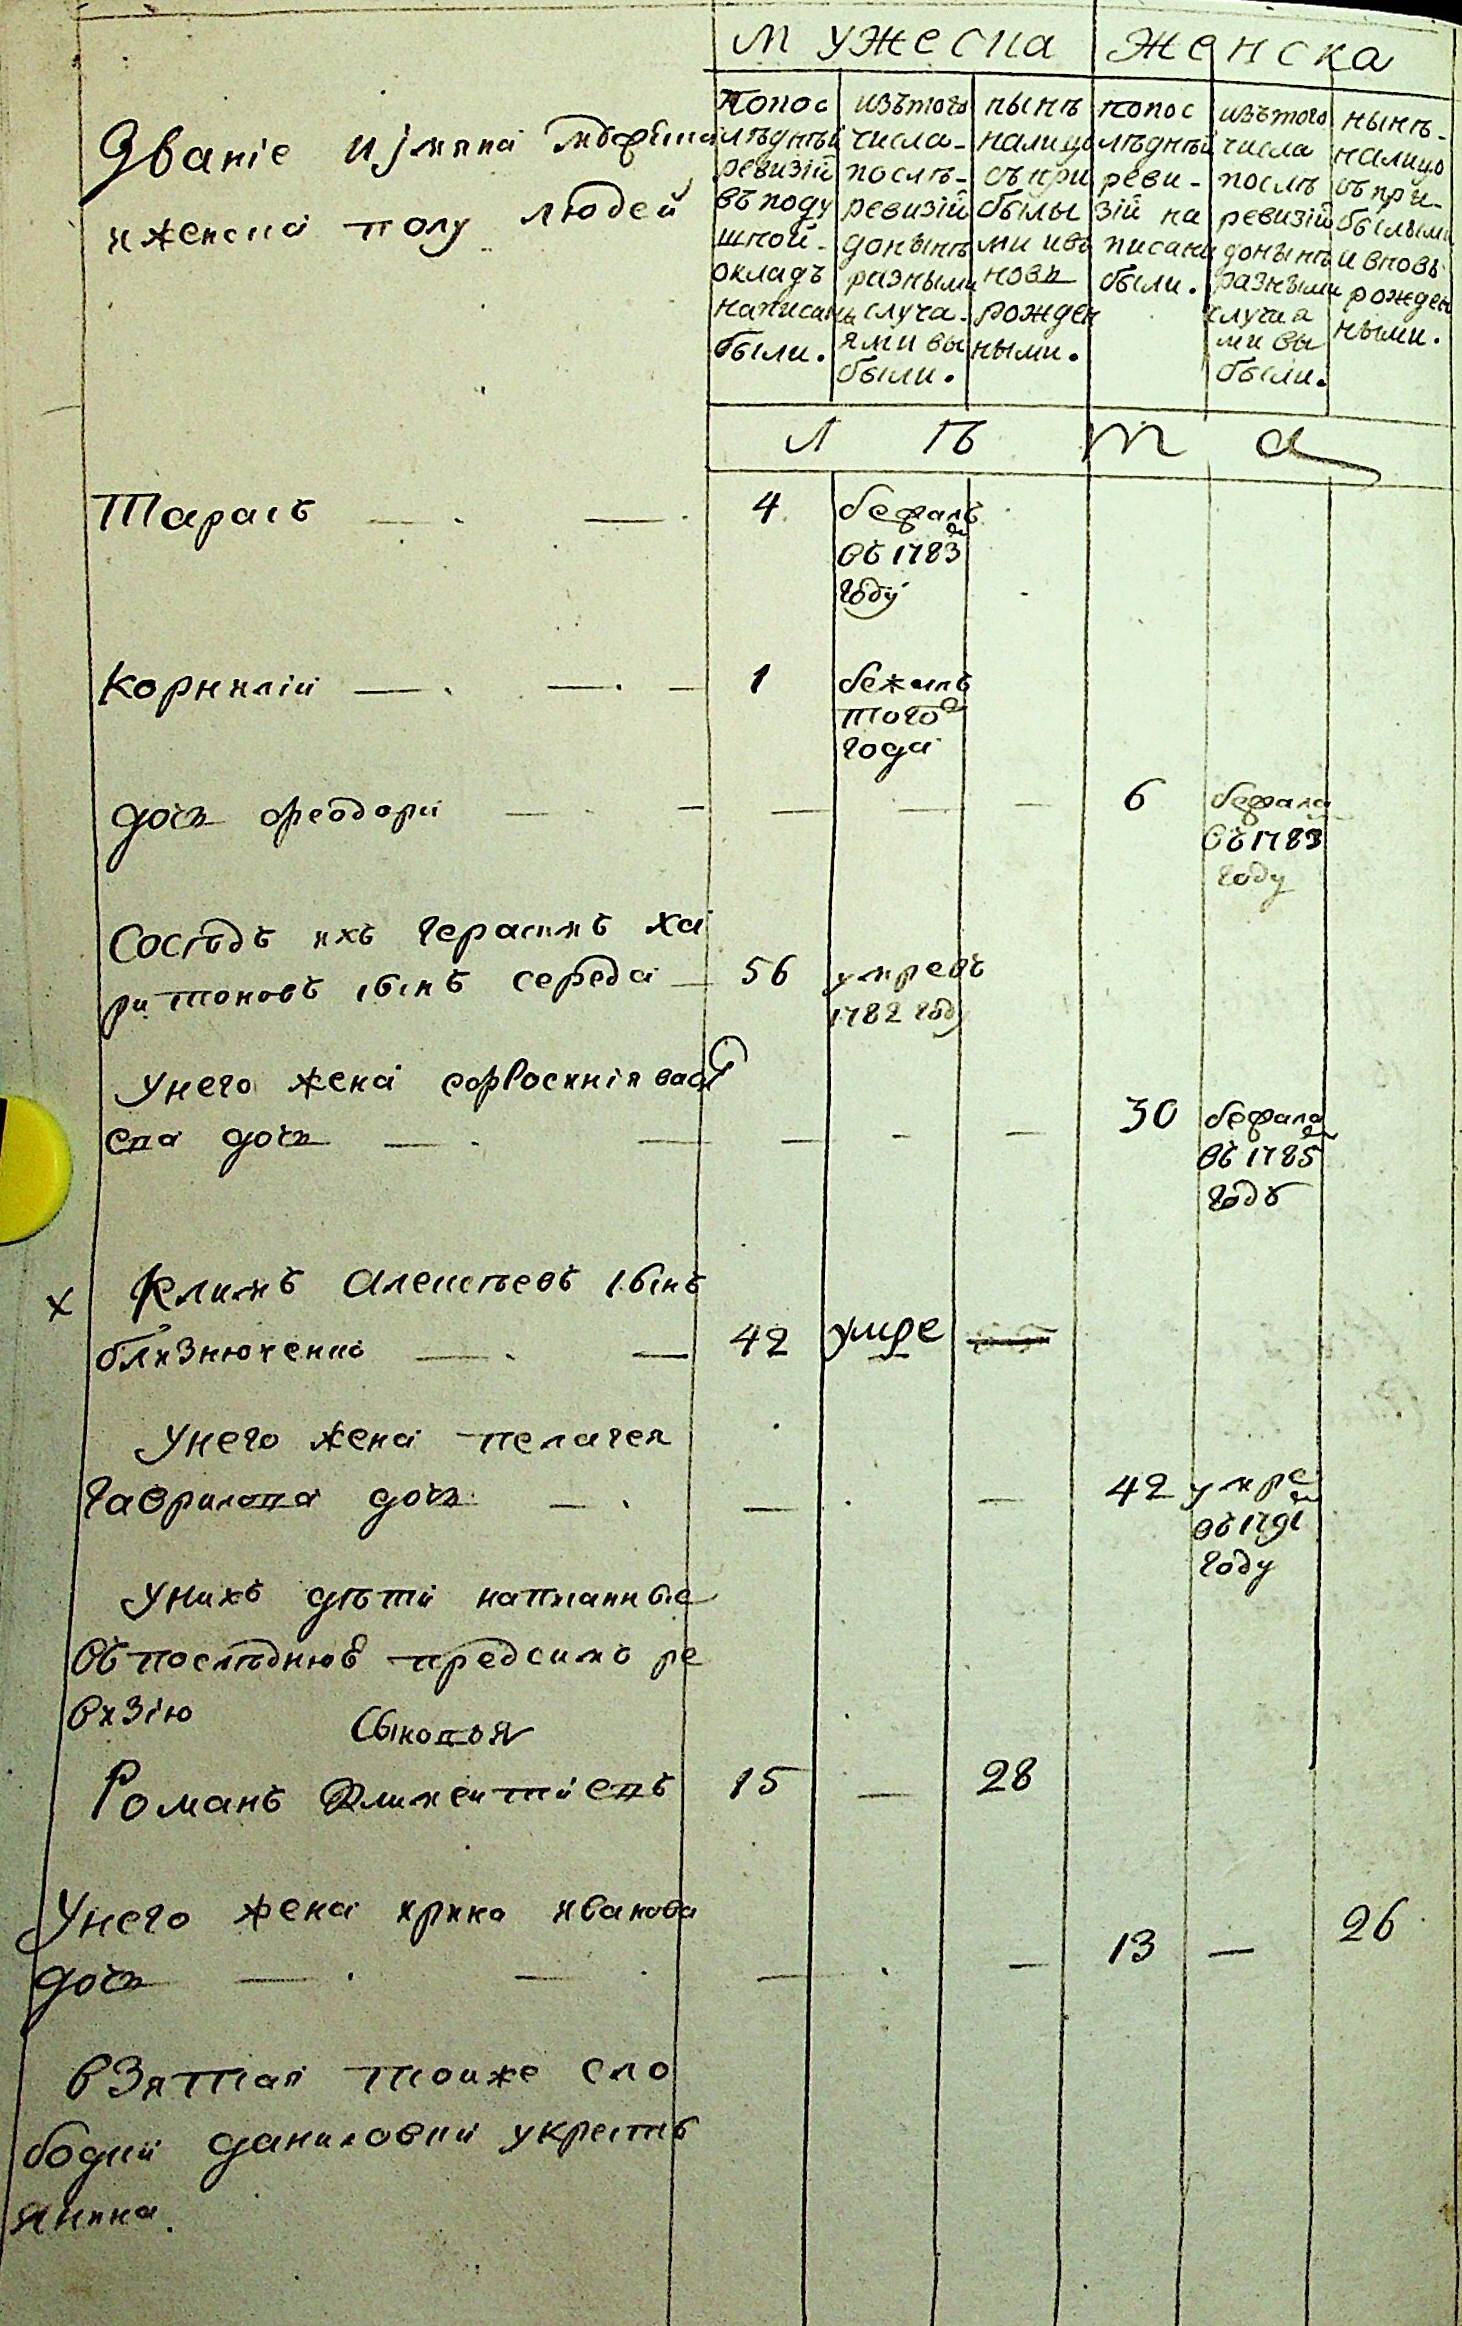 Мужеска Женска
Званіе иімяна мужеска
иженска полу людей
Попос
лѣдней
ревизій
въ поду
шной
окладъ
написаны
были.
изътого
числа
послѣ
ревизій
донынѣ
разными
случа
ями вы
были.
нынѣ
налицо
съ при
былы
ми ивъ
новь
рожден
ными.
попос
лѣдней
реви
зій на
писаны
были.
изътого
числа
послѣ
ревизій
донынѣ
разными
случа
ми вы
были.
нынѣ
налицо
съ при
былыми
и вновь
рожден
ными.
Лѣта
Тарасъ 4 бежалъ
въ 1783м
году
Корнилій 1 бежалъ
того
года
дочь Феодора 6 бежала
въ 1783
году
Соседъ ихъ Герасимъ Ха
ритоновъ сынъ Середа 56 умре въ
1782 году
Унего жена Ефросинія Васи
ева дочь 30 бежала
въ 1785м
году
х Климъ Алексѣевъ сынъ
близнюченко 42 умре
Унего жена Пелагея
Гаврилова дочь 42 умре
въ 1791м
году
Унихъ дѣти написанные
въ последнюю предсимъ ре
визію
Сыновья
Романъ Климентіевъ 15 — 28
Унего жена Ирина Иванова
дочь 13 — 26
взятая тоиже сло
бодки Даниловки укресть
янина.